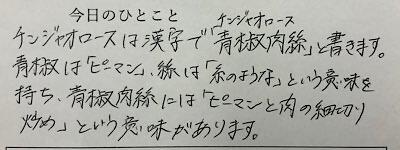 今日のひとこと
チンジャオロース
チンジャオロースは漢字で「青椒肉絲」と書きます。
青椒は「ピーマン」、絲は「糸のような」という意味を
持ち、青椒肉絲には「ピーマンと肉の細切り
炒め」という意味があります。